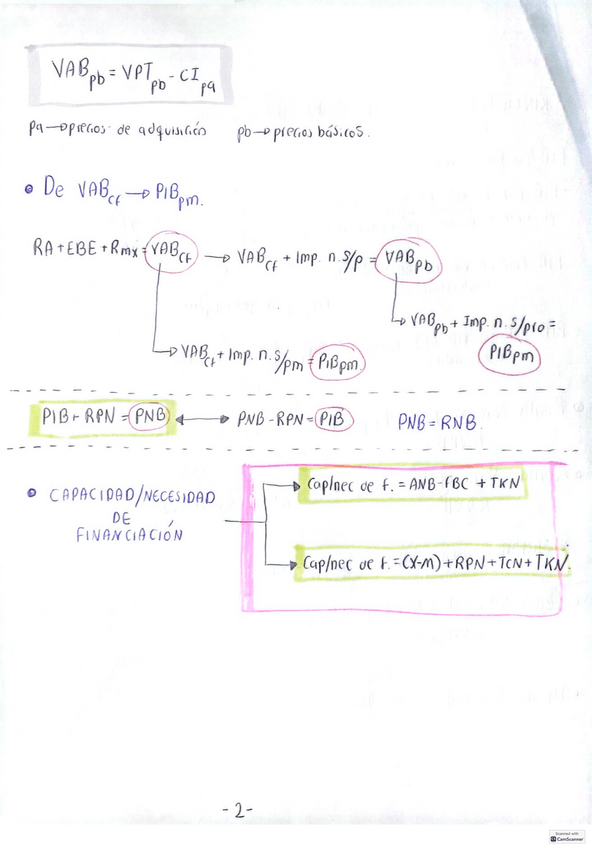 VAB pb = VPT pb - CI pa
pa → precios de adquisición pb → precios básicos.
• De VAB cf → PIB pm.
RA + EBE + Rmx = VAB cf → VAB cf + Imp. n. s/p = VAB pb
→ VAB pb + Imp. n. s/pro =
PIB pm
→ VAB cf + Imp. n. s/pm = PIB pm.
PIB + RPN = PNB ↔ PNB - RPN = PIB PNB = RNB.
• CAPACIDAD/NECESIDAD
DE
FINANCIACIÓN
→ Cap/nec de f. = ANB - FBC + TKN
→ Cap/nec de f. = (X-M) + RPN + TCN + TKN.
-2-
Scanned with
CamScanner